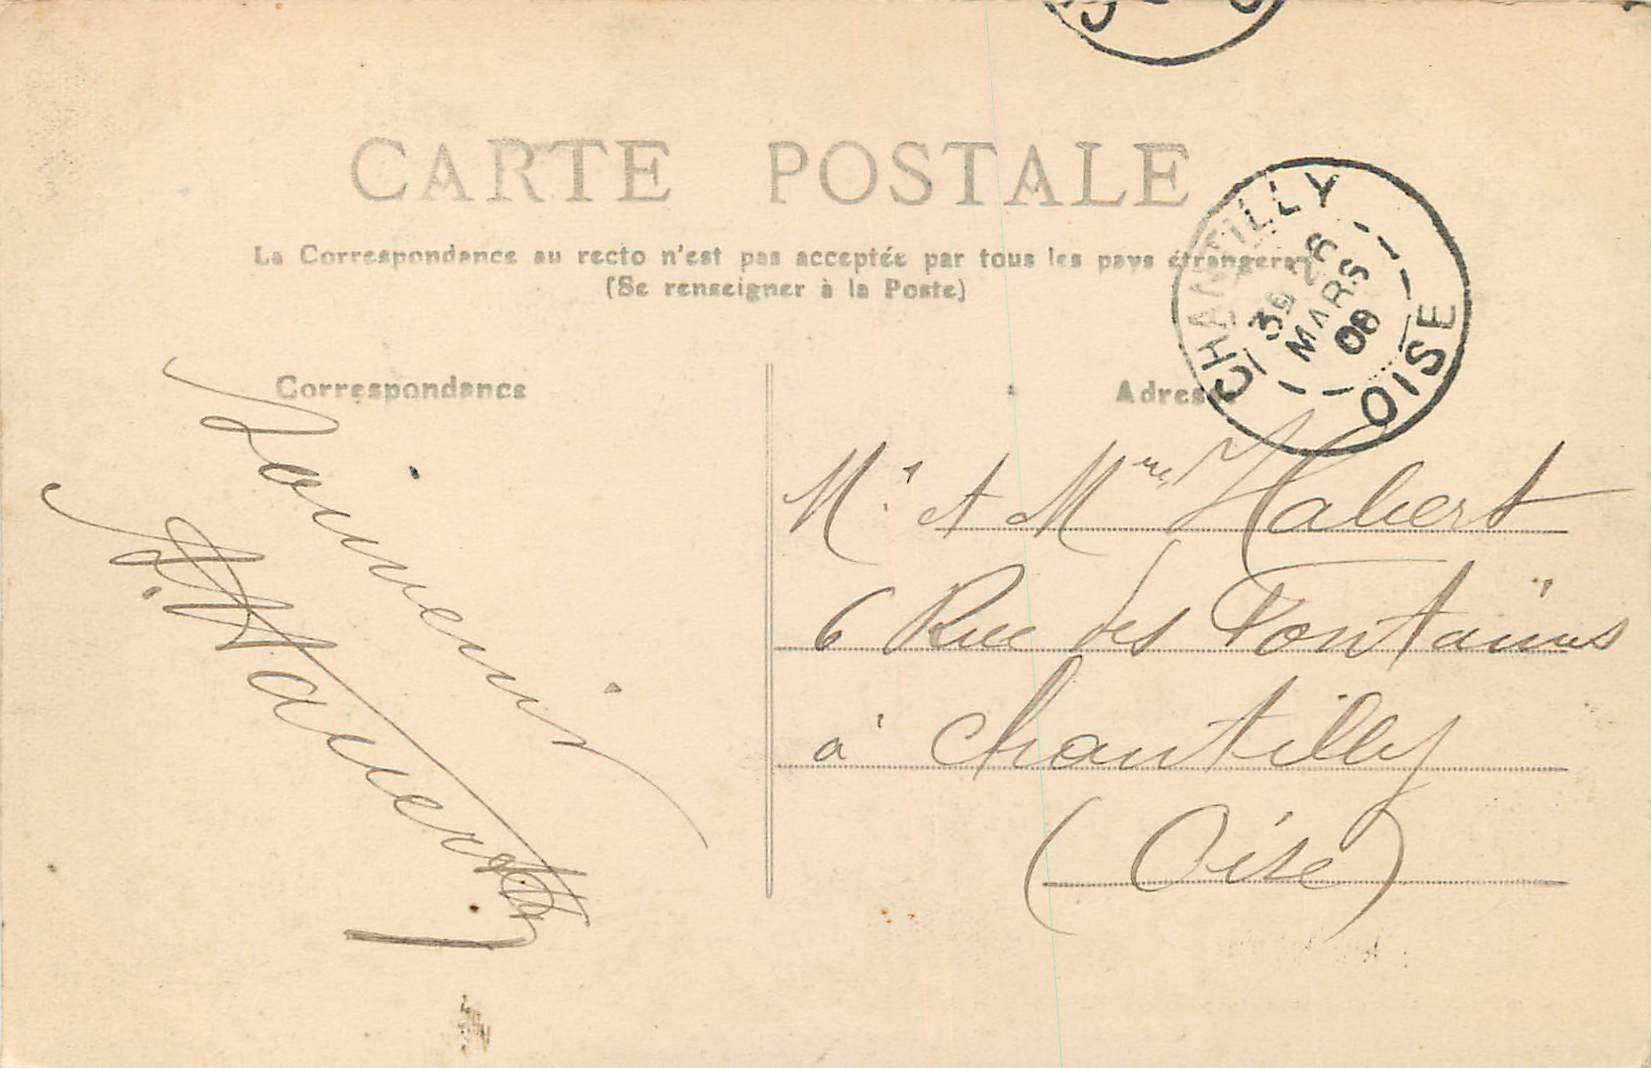 CARTE POSTALE
La Correspondance au recto n'est pas acceptée par tous les pays étrangers
(Se renseigner à la Poste)
CHANTILLY
26
MARS
08
OISE
Correspondance
Adresse
Souvenir
Mr et Mme Habert
6 Rue des Fontaines
à Chantilly
(Oise)